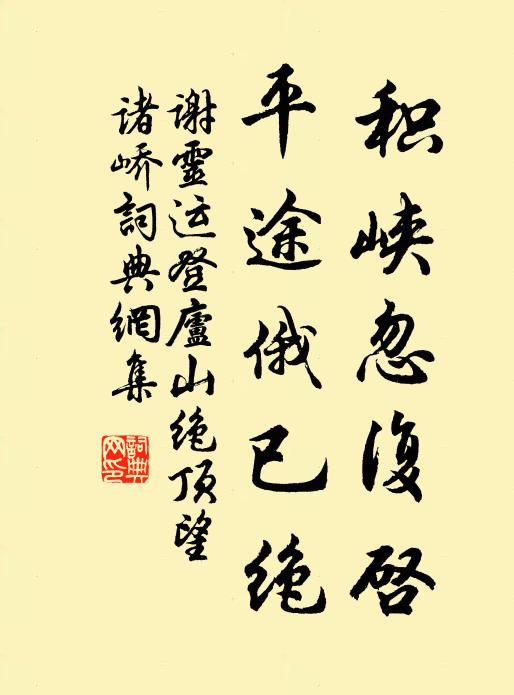 积峡忽復啓
平途俄已絶
謝靈运登廬山绝顶望
诸嶠詞典網集
詞典
网印